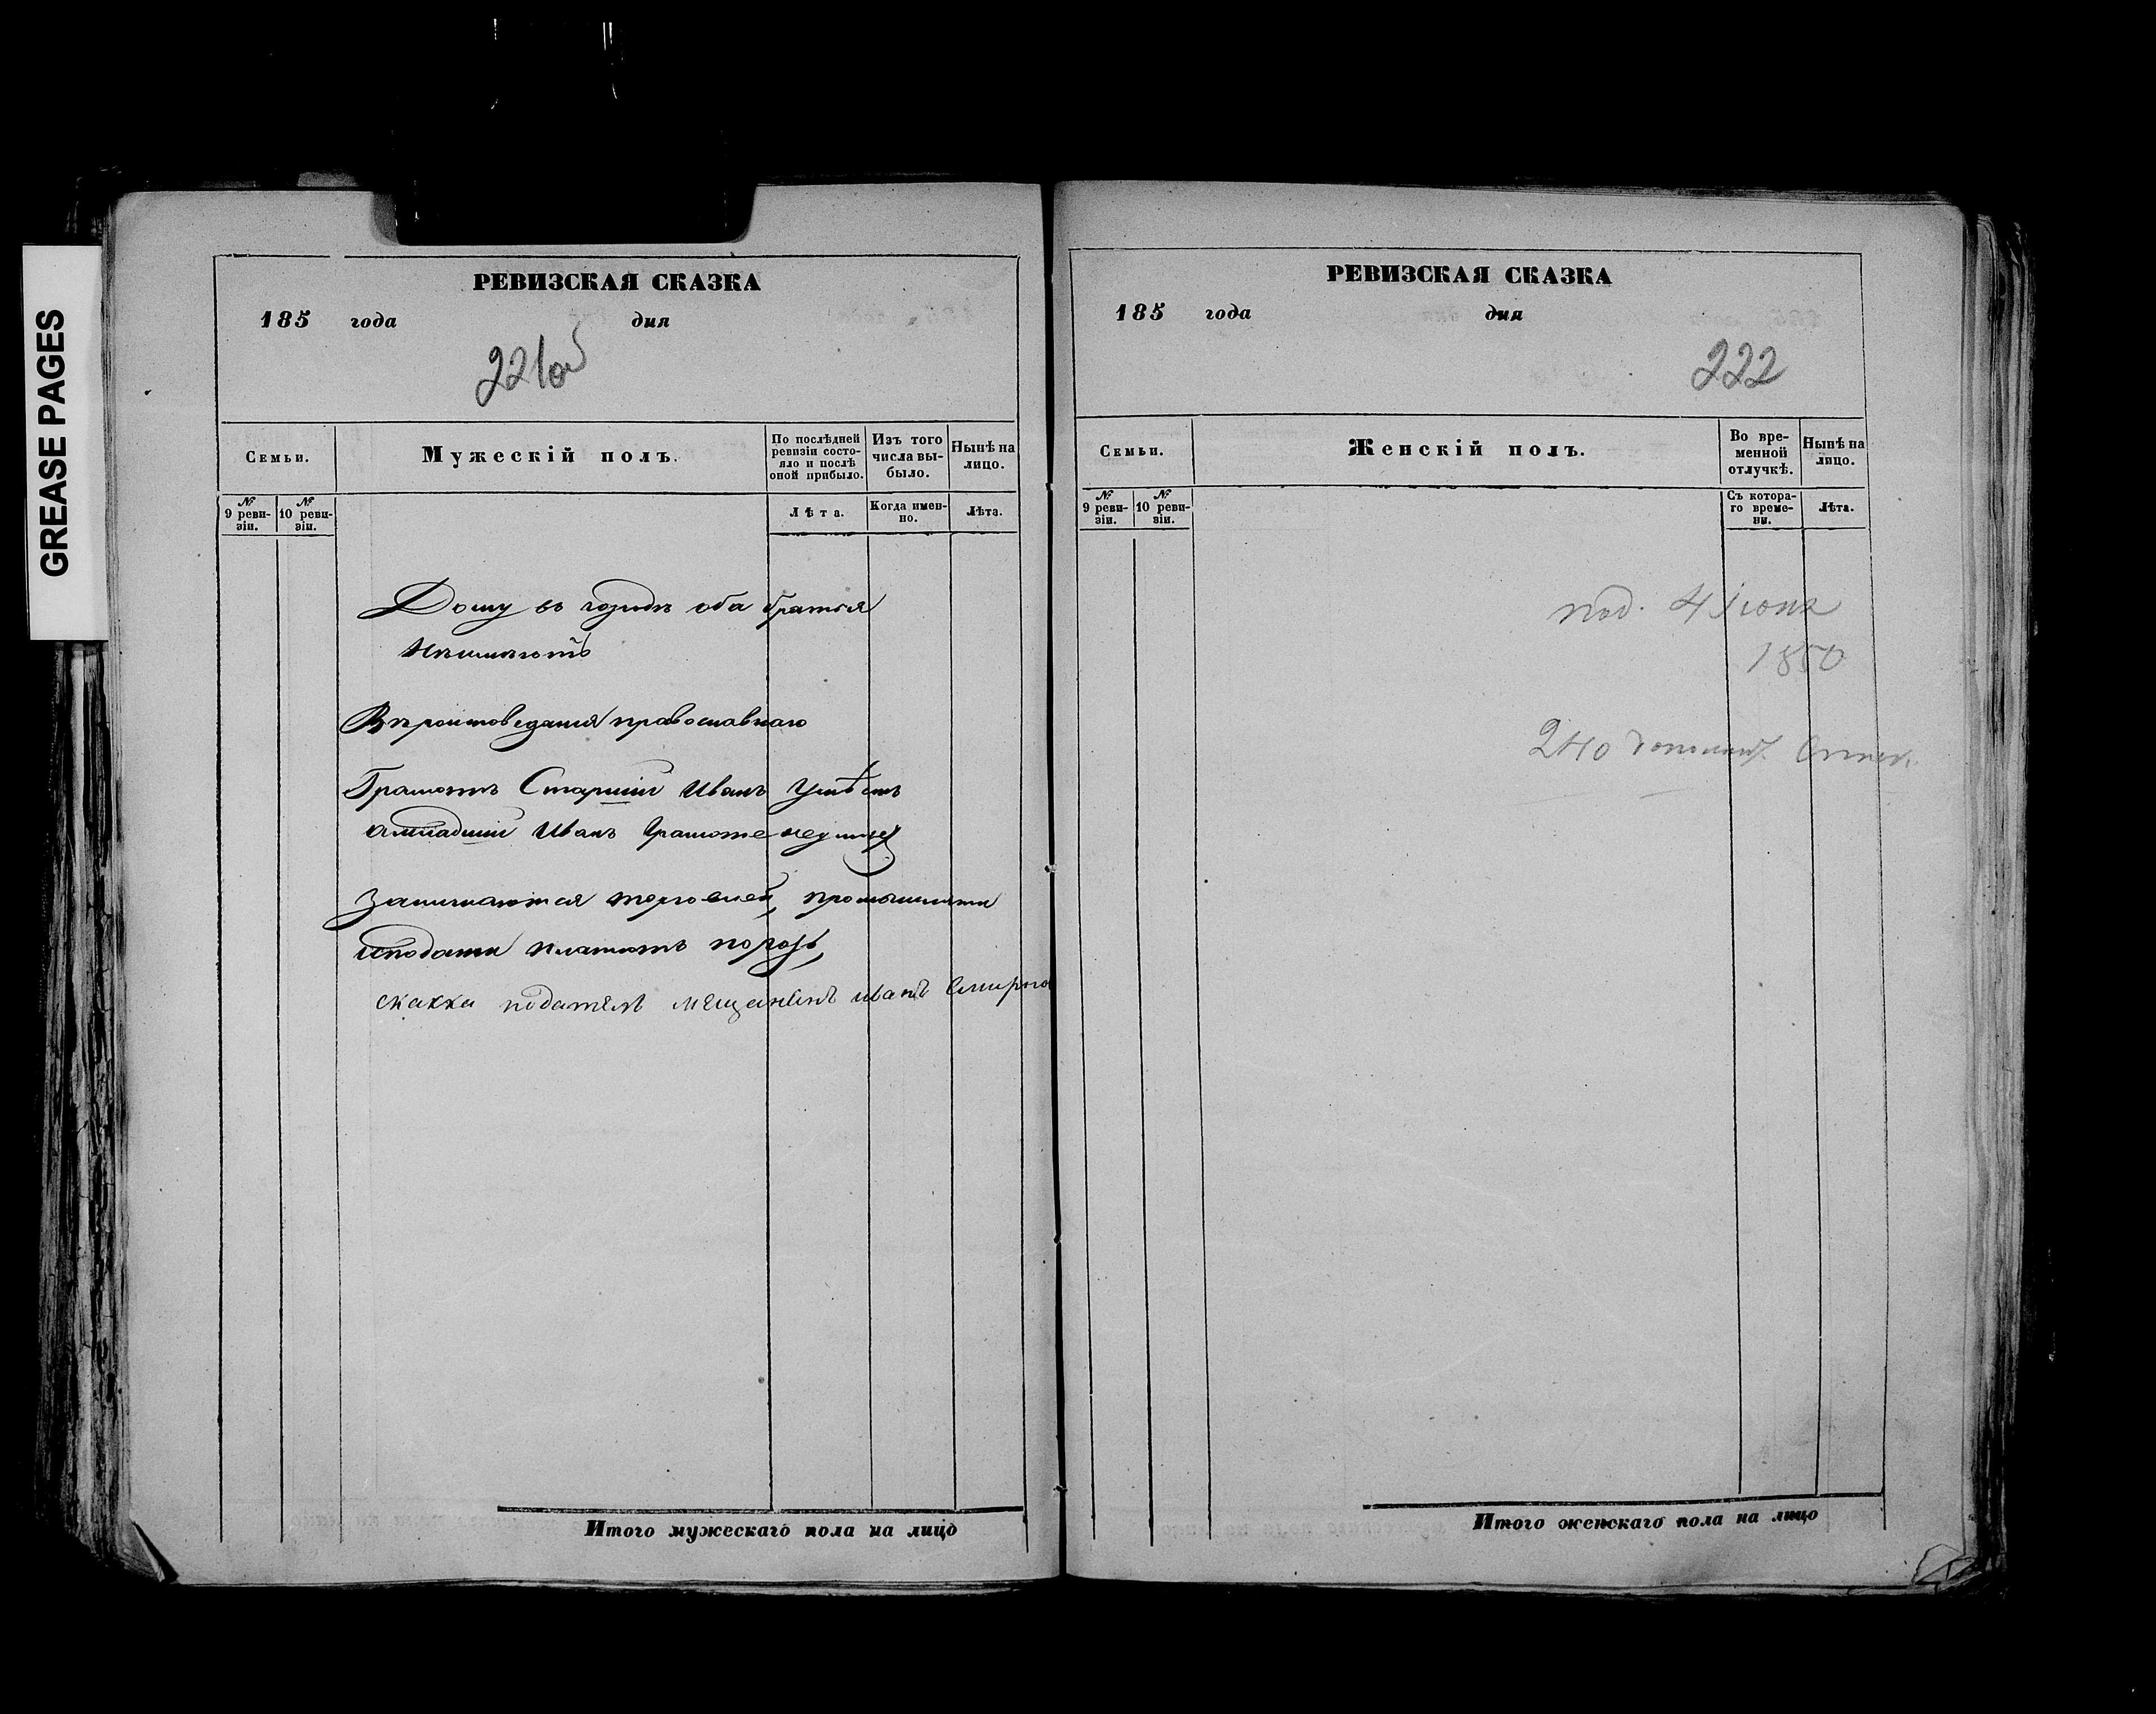 GREASE PAGES
РЕВИЗСКАЯ СКАЗКА
185 года дня
221об
Семьи.
Мужескій полъ.
По послѣдней ревизіи состояло и послѣ оной прибыло.
Изъ того числа выбыло.
Нынѣ на лицо.
№ 9 ревизіи.
№ 10 ревизіи.
Лѣта.
Когда именно.
Лѣта.
Дому въ городѣ оба братья
Неимѣютъ
Вѣроисповеданія православнаго
Грамотѣ Старшій Иванъ Умѣетъ
амладшій Иванъ Грамоте неумеѣ
Занимаются торговлей,
иподати платятъ порозь,
скаска подателъ мещанинъ иванъ Смирно
Итого мужескаго пола на лицо
РЕВИЗСКАЯ СКАЗКА
185 года дня
222
Семьи.
Женскій полъ.
Во временной отлучкѣ.
Нынѣ на лицо.
№ 9 ревизіи.
№ 10 ревизіи.
Съ котораго времени.
Лѣта.
под. 4 Іюня
1850
240
Итого женскаго пола на лицо